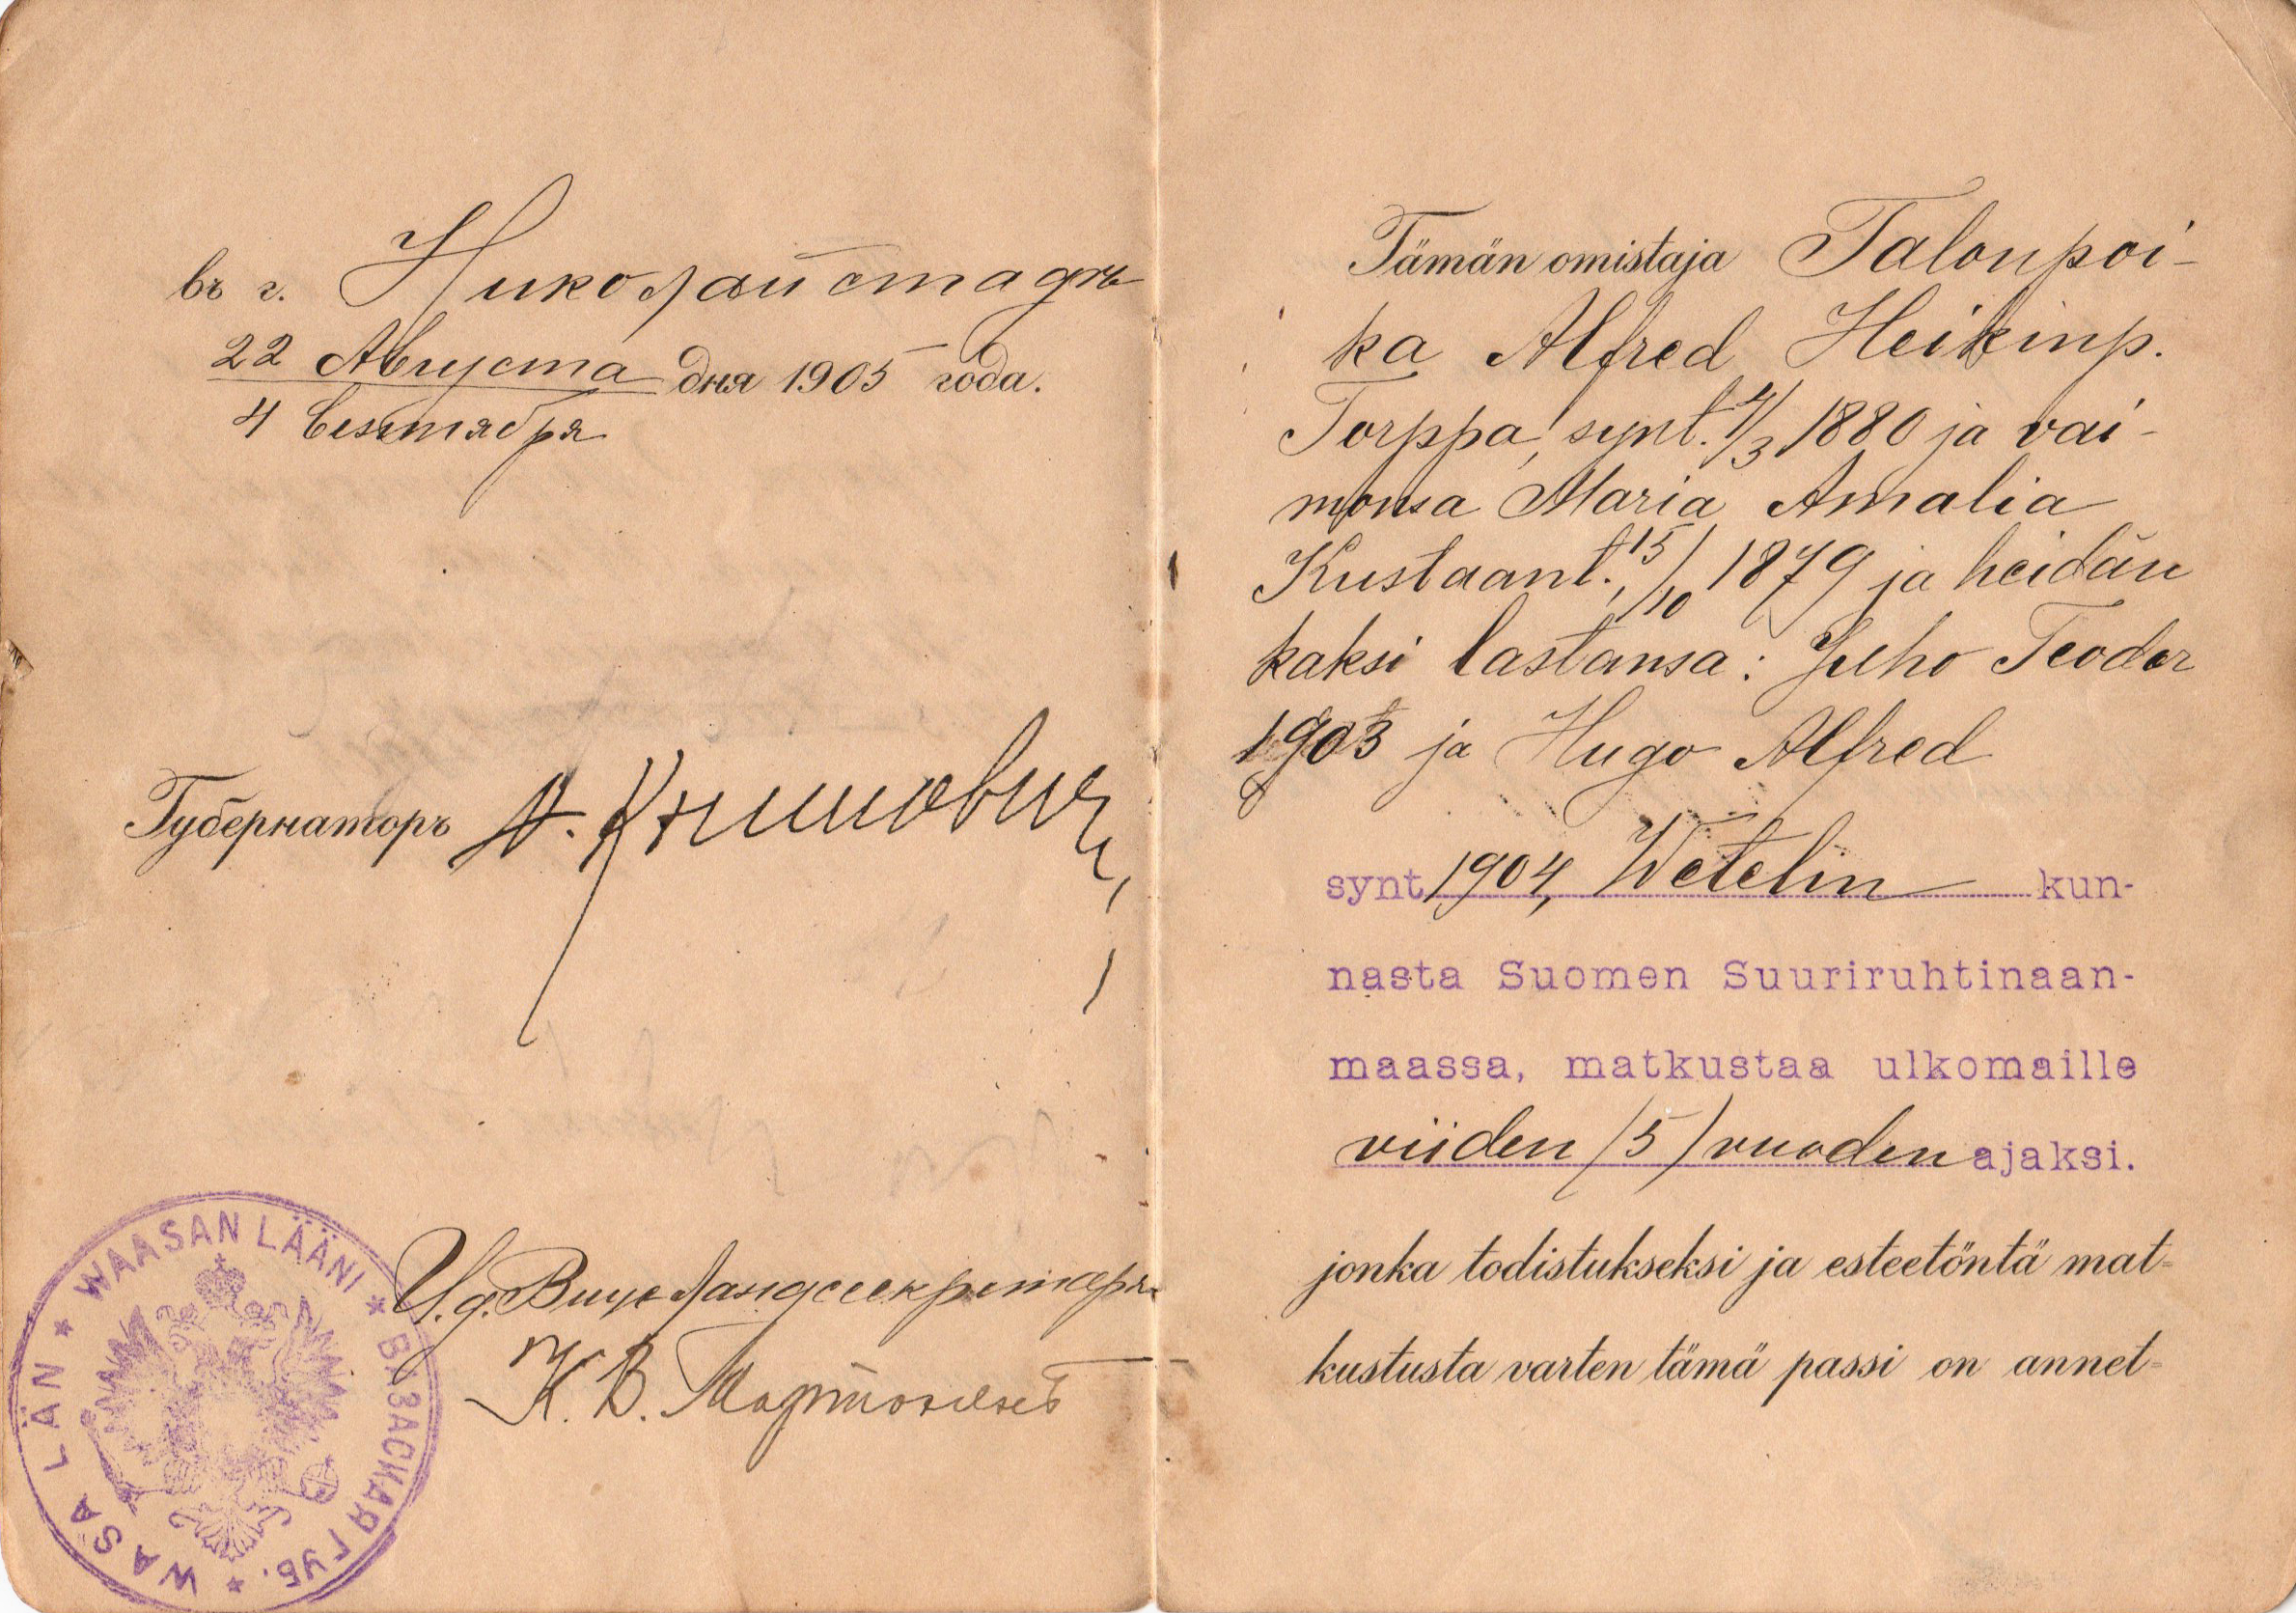 въ г. Николайстадъ
22 Августа дня 1905 года.
4 Сентября
Губернаторъ А. Книповичъ
И.д. Вице Ландссекретаря
К. В.
WAASAN LÄÄNI * ВАЗАСКАЯ ГУБ. * WASA LÄN *
Tämän omistaja Talonpoi-
ka Alfred Heikinp.
Torppa, synt. 4/3 1880 ja vai-
monsa Maria Amalia
Kustaant. 15/10 1879 ja heidän
kaksi lastansa: Juho Teodor
1903 ja Hugo Alfred
synt 1904, Wetelin kun-
nasta Suomen Suuriruhtinaan-
maassa, matkustaa ulkomaille
viiden /5/ vuoden ajaksi.
jonka todistukseksi ja esteetöntä mat-
kustusta varten tämä passi on annet-